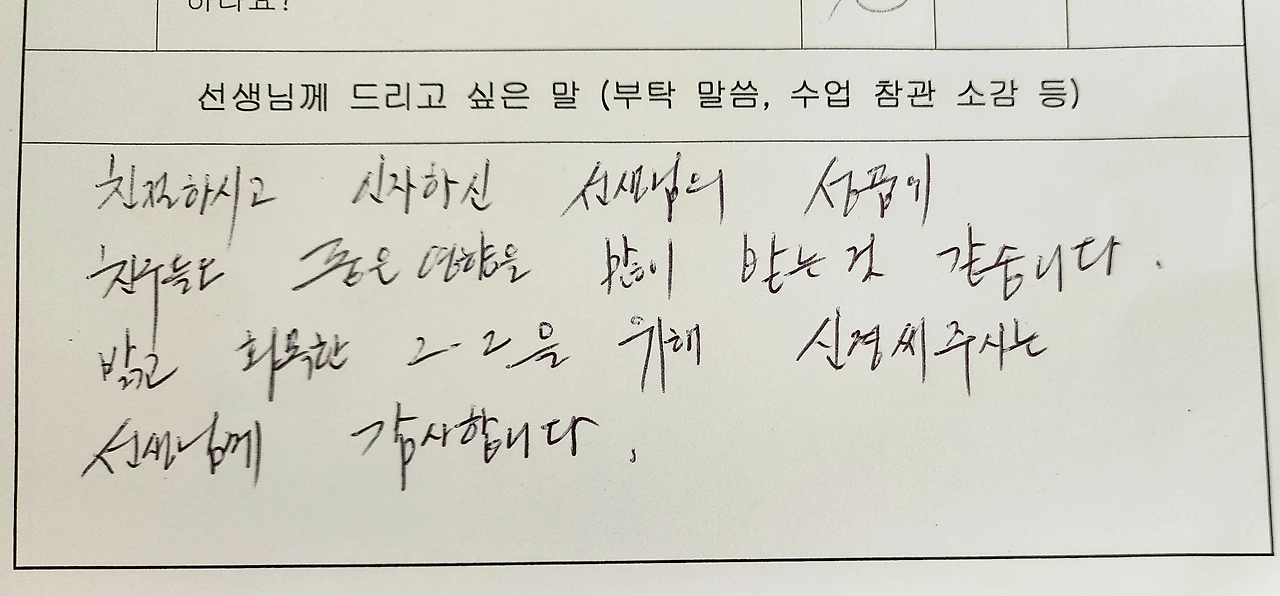 하나요?
선생님께 드리고 싶은 말 (부탁 말씀, 수업 참관 소감 등)
친절하시고 인자하신 선생님의 성품에
친구들도 좋은 영향을 많이 받는 것 같습니다.
밝고 화목한 2-2을 위해 신경써주시는
선생님께 감사합니다.